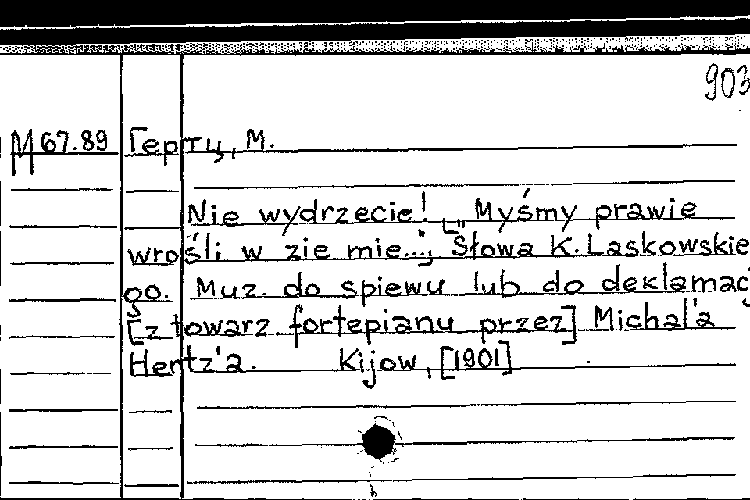 903
М 67.89 Гертц, М.
Nie wydrzecie! [„Myśmy prawie
wrośli w zie mie...; Słowa K. Laskowskie
go. Muz. do spiewu lub do deklamac
[z towarz fortepianu przez] Michal'a
Hertz'a. Kijow, [1901]